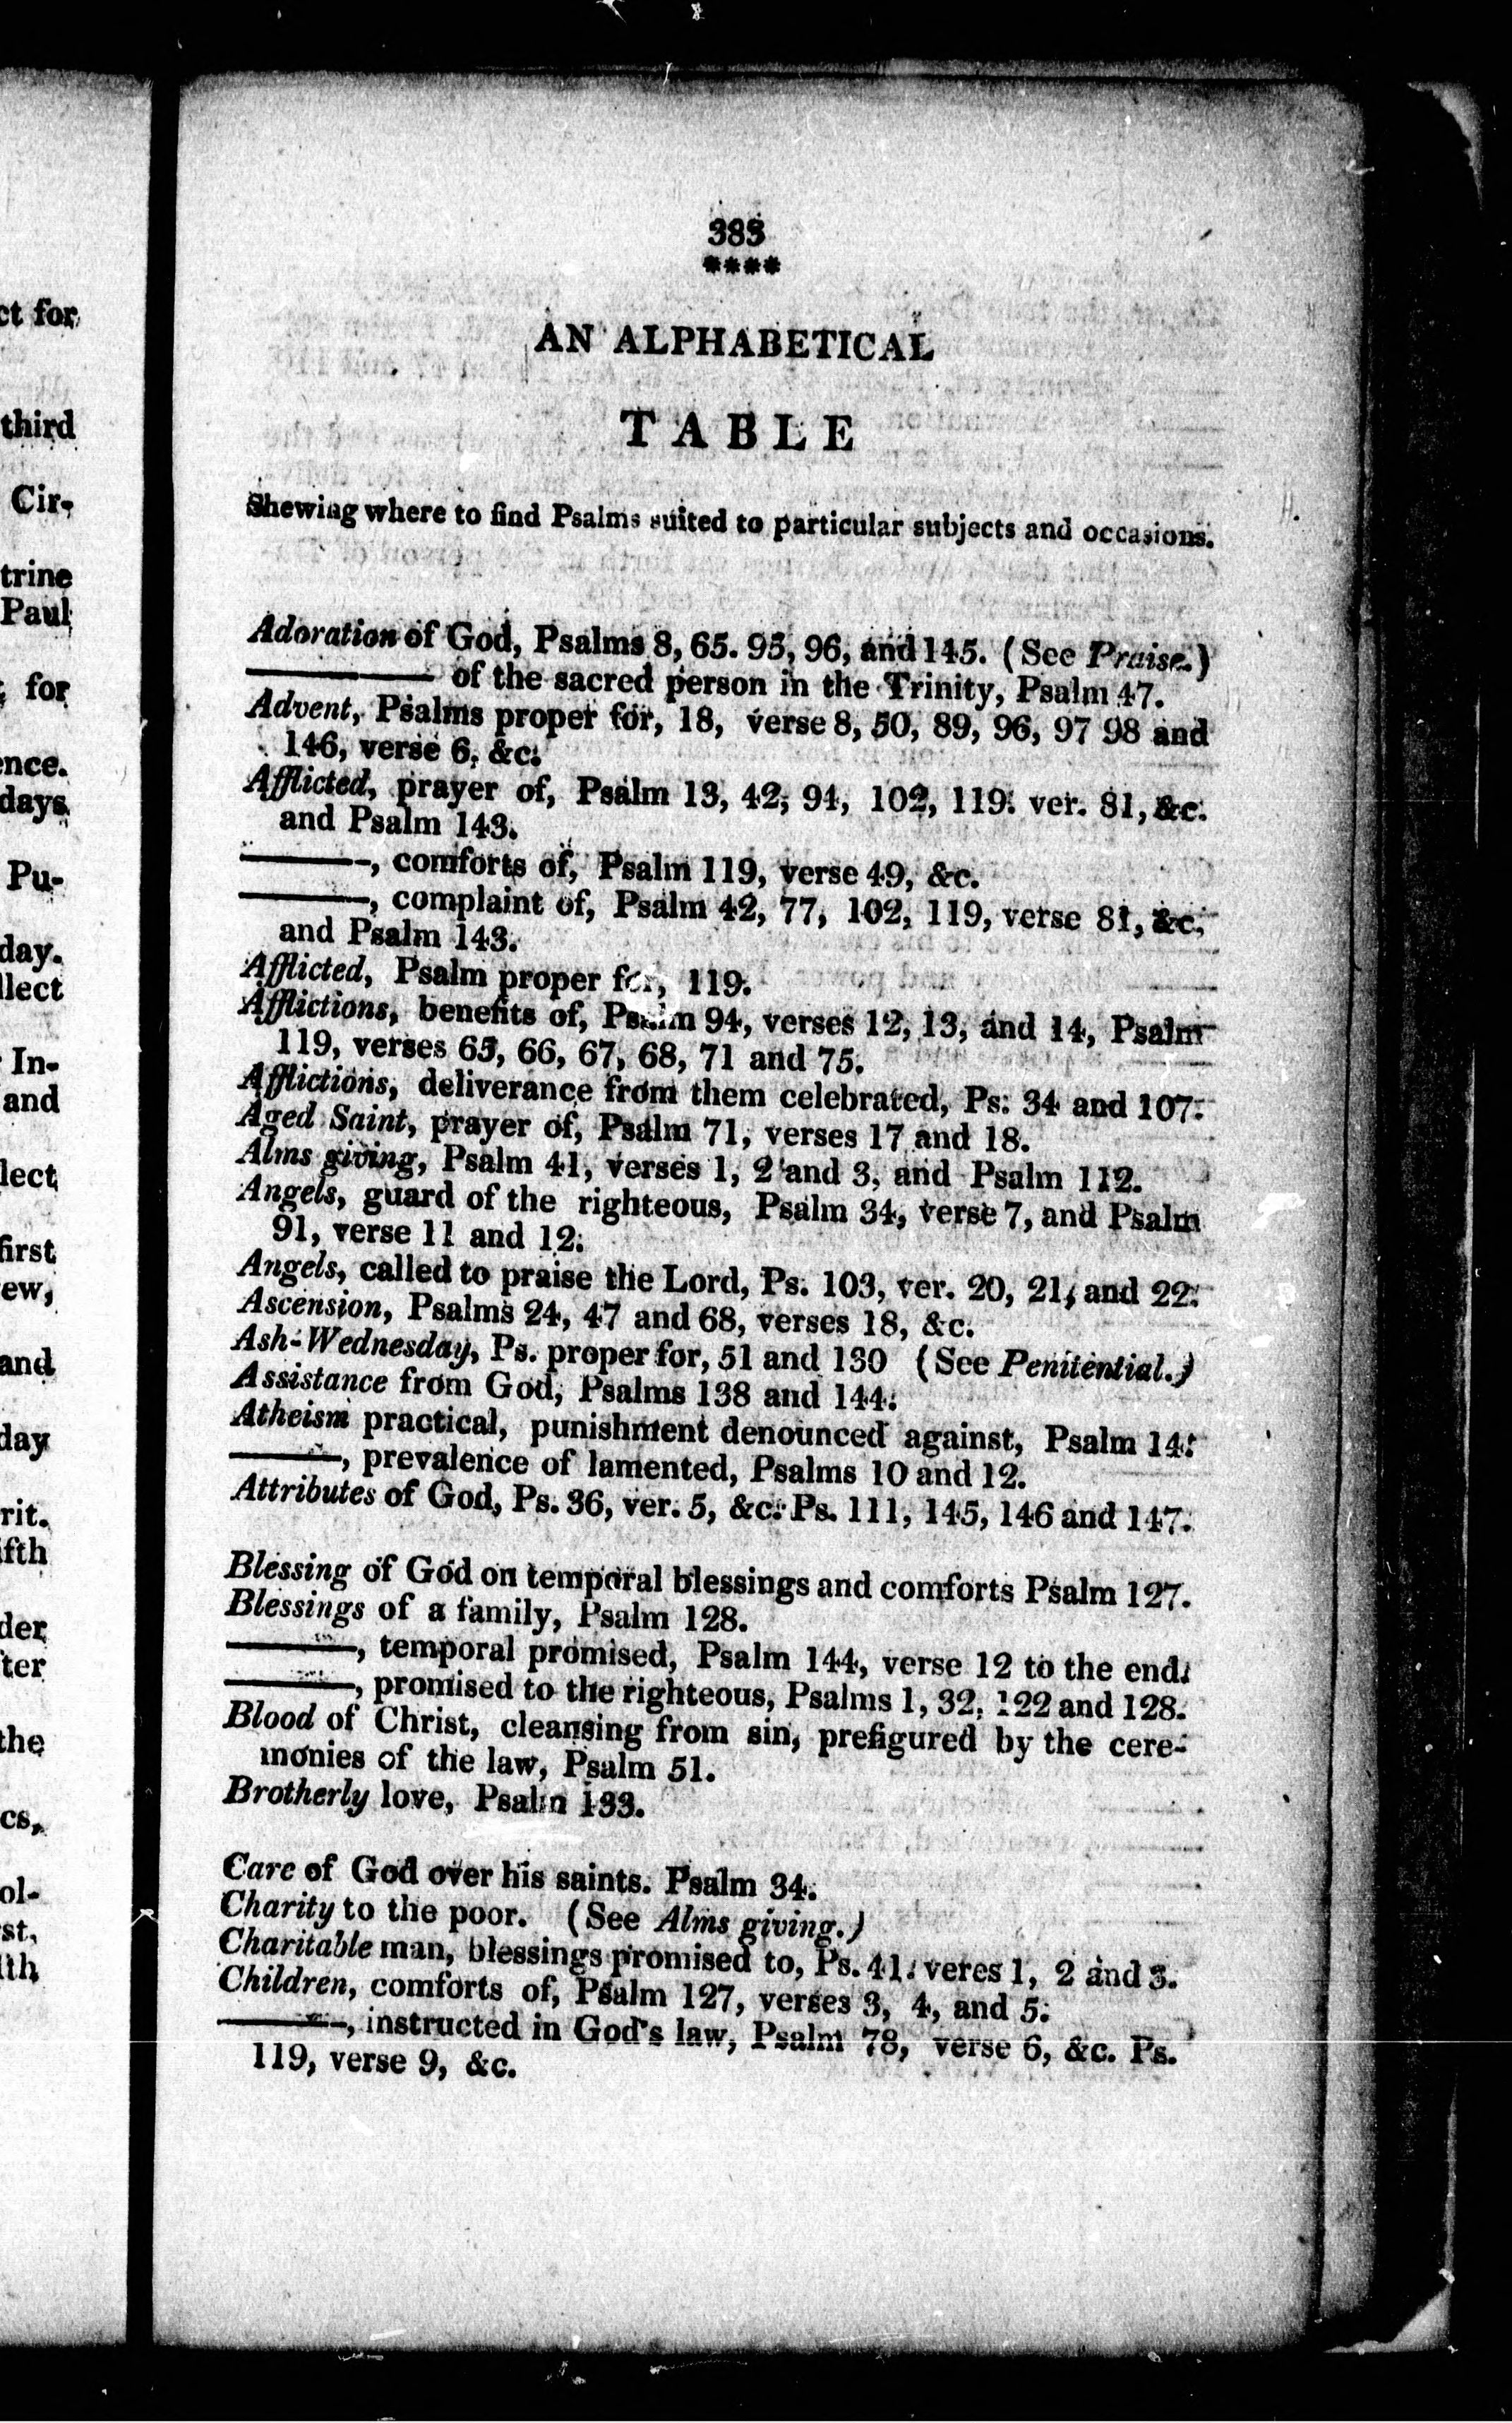 383
****
AN ALPHABETICAL
TABLE
Shewing where to find Psalms suited to particular subjects and occasions.
Adoration of God, Psalms 8, 65. 95, 96, and 145. (See Praise.)
——— of the sacred person in the Trinity, Psalm 47.
Advent, Psalms proper for, 18, verse 8, 50, 89, 96, 97 98 and
146, verse 6, &c.
Afflicted, prayer of, Psalm 13, 42, 94, 102, 119. ver. 81, &c.
and Psalm 143.
———, comforts of, Psalm 119, verse 49, &c.
———, complaint of, Psalm 42, 77, 102, 119, verse 81, &c.
and Psalm 143.
Afflicted, Psalm proper for, 119.
Afflictions, benefits of, Psalm 94, verses 12, 13, and 14, Psalm
119, verses 65, 66, 67, 68, 71 and 75.
Afflictions, deliverance from them celebrated, Ps. 34 and 107.
Aged Saint, prayer of, Psalm 71, verses 17 and 18.
Alms giving, Psalm 41, verses 1, 2 and 3, and Psalm 112.
Angels, guard of the righteous, Psalm 34, verse 7, and Psalm
91, verse 11 and 12.
Angels, called to praise the Lord, Ps. 103, ver. 20, 21, and 22.
Ascension, Psalms 24, 47 and 68, verses 18, &c.
Ash-Wednesday, Ps. proper for, 51 and 130 (See Penitential.)
Assistance from God, Psalms 138 and 144.
Atheism practical, punishment denounced against, Psalm 14.
———, prevalence of lamented, Psalms 10 and 12.
Attributes of God, Ps. 36, ver. 5, &c. Ps. 111, 145, 146 and 147.
Blessing of God on temporal blessings and comforts Psalm 127.
Blessings of a family, Psalm 128.
———, temporal promised, Psalm 144, verse 12 to the end.
———, promised to the righteous, Psalms 1, 32, 122 and 128.
Blood of Christ, cleansing from sin, prefigured by the cere-
monies of the law, Psalm 51.
Brotherly love, Psalm 133.
Care of God over his saints. Psalm 34.
Charity to the poor. (See Alms giving.)
Charitable man, blessings promised to, Ps. 41. veres 1, 2 and 3.
Children, comforts of, Psalm 127, verses 3, 4, and 5.
———, instructed in God's law, Psalm 78, verse 6, &c. Ps.
119, verse 9, &c.